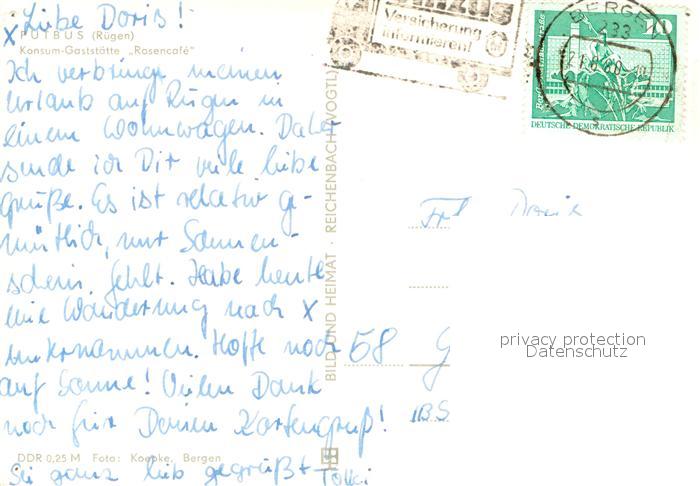 Liebe Doris!
x PUTBUS (Rügen)
Konsum-Gaststätte „Rosencafé"
Ich verbringe meinen
Urlaub auf Rügen in
einem Wohnwagen. Daher
sende ich Dir viele liebe
Grüße. Es ist relativ ge-
mütlich, nur Sonnen-
schein fehlt. Habe heute
eine Wanderung nach x
unternommen. Hoffe noch
auf Sonne! Vielen Dank
noch für Deinen Kartengruß!
DDR 0,25 M Foto: Koepke, Bergen
Sei ganz lieb gegrüßt
BILD UND HEIMAT · REICHENBACH (VOGTL)
Versicherung
informieren!
BERGEN
233
10
DEUTSCHE DEMOKRATISCHE REPUBLIK
Frl
58
privacy protection
Datenschutz